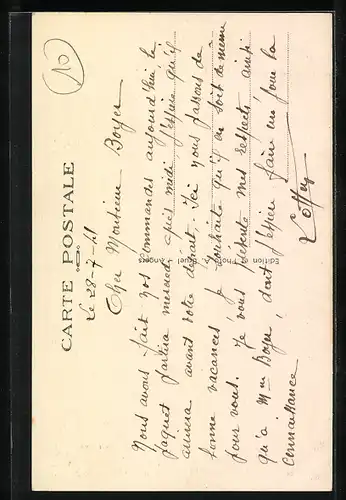 10
CARTE POSTALE
Le 28-7-11
Cher Monsieur Boyer
Nous avons fait vos commandes aujourd'hui le
paquet partira mercredi après midi j'espère qu'il
arrivera avant votre départ. Ici nous passons de
bonne vacances je souhaite qu'il en soit de meme
pour vous. Je vous présente mes respects ainsi
qu'a Mme Boyer, dont j'espère faire un jour la
connaissance
Edition Photo Angers